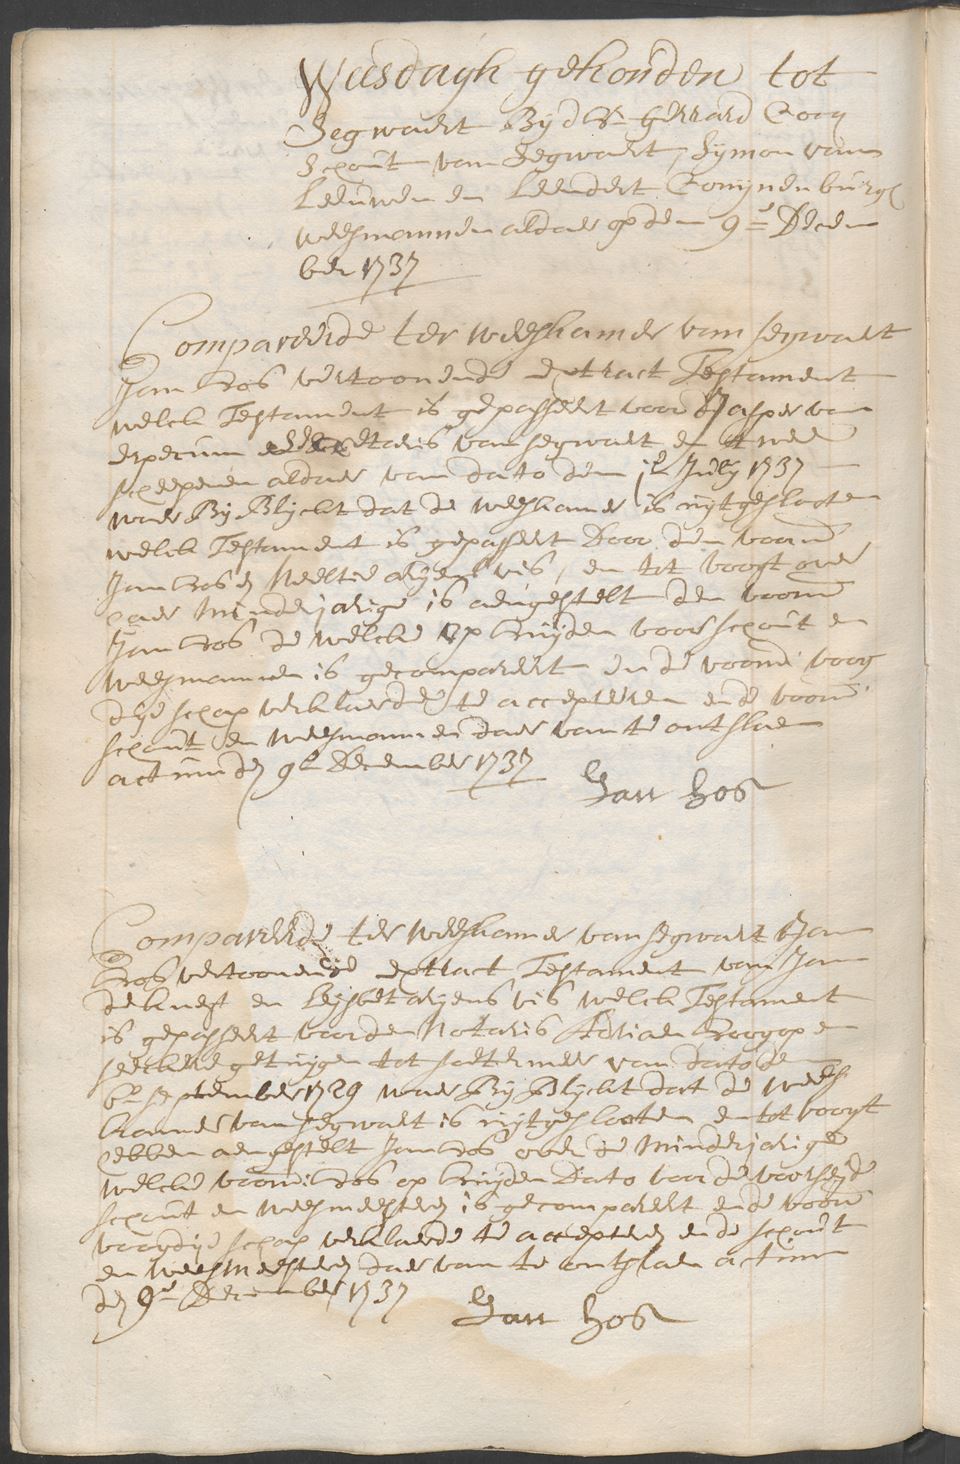 Weesdagh gehouden tot
Segwaert Bij d Hr Gerrard Cocq
Schout van Segwaert, Sijmon van
Leeuwen en Leendert Conijnenburgh
weesmannen aldaer op den 9e Decem
ber 1737
Compareerde ter weeskamer van segwaert
Jan Bos vertoonende extract Testament
welck Testament is gepasseert voor Jasper van
secretaris van segwaert en twee
scheepenen aldaer van dato den July 1737
waer Bij Blijckt dat de weeskamer is uijtgeslooten
welck Testament is gepasseert Door den voorn
Jan Bos en Neeltie Arijens vis, en tot voogt over
haer minderjarige is aengestelt den voorn
Jan Bos de welcke op huijden voor schout en
weesmannen is gecompareert en de voorn voog
dije schap verklaerde te accepteren en de voorn
schout en weesmannen daer van te ontslaen
actum den 9e December 1737
Jan bos
Compareerde ter weeskamer van segwaert Jan
Bos vertoonende extract Testament van Jan
de knegt en Lijsbet arijens vis welck Testament
is gepasseert voor den Notaris Adriaen
seeckere getuijgen tot soetermeer van dato den
6e september 1729 waer Bij Blijckt dat de wees
kamer van segwaert is uijtgeslooten en tot voogt
hebben aengestelt Jan Bos over de minderjarige
welcke voorn Bos op huijden Dato voor de voorseijde
schout en weesmeesters is gecompareert en de voorn
voogdije schap verklaerde te accepteren en de schout
en weesmeesters daer van te ontslaen actum
den 9e December 1737
Jan bos